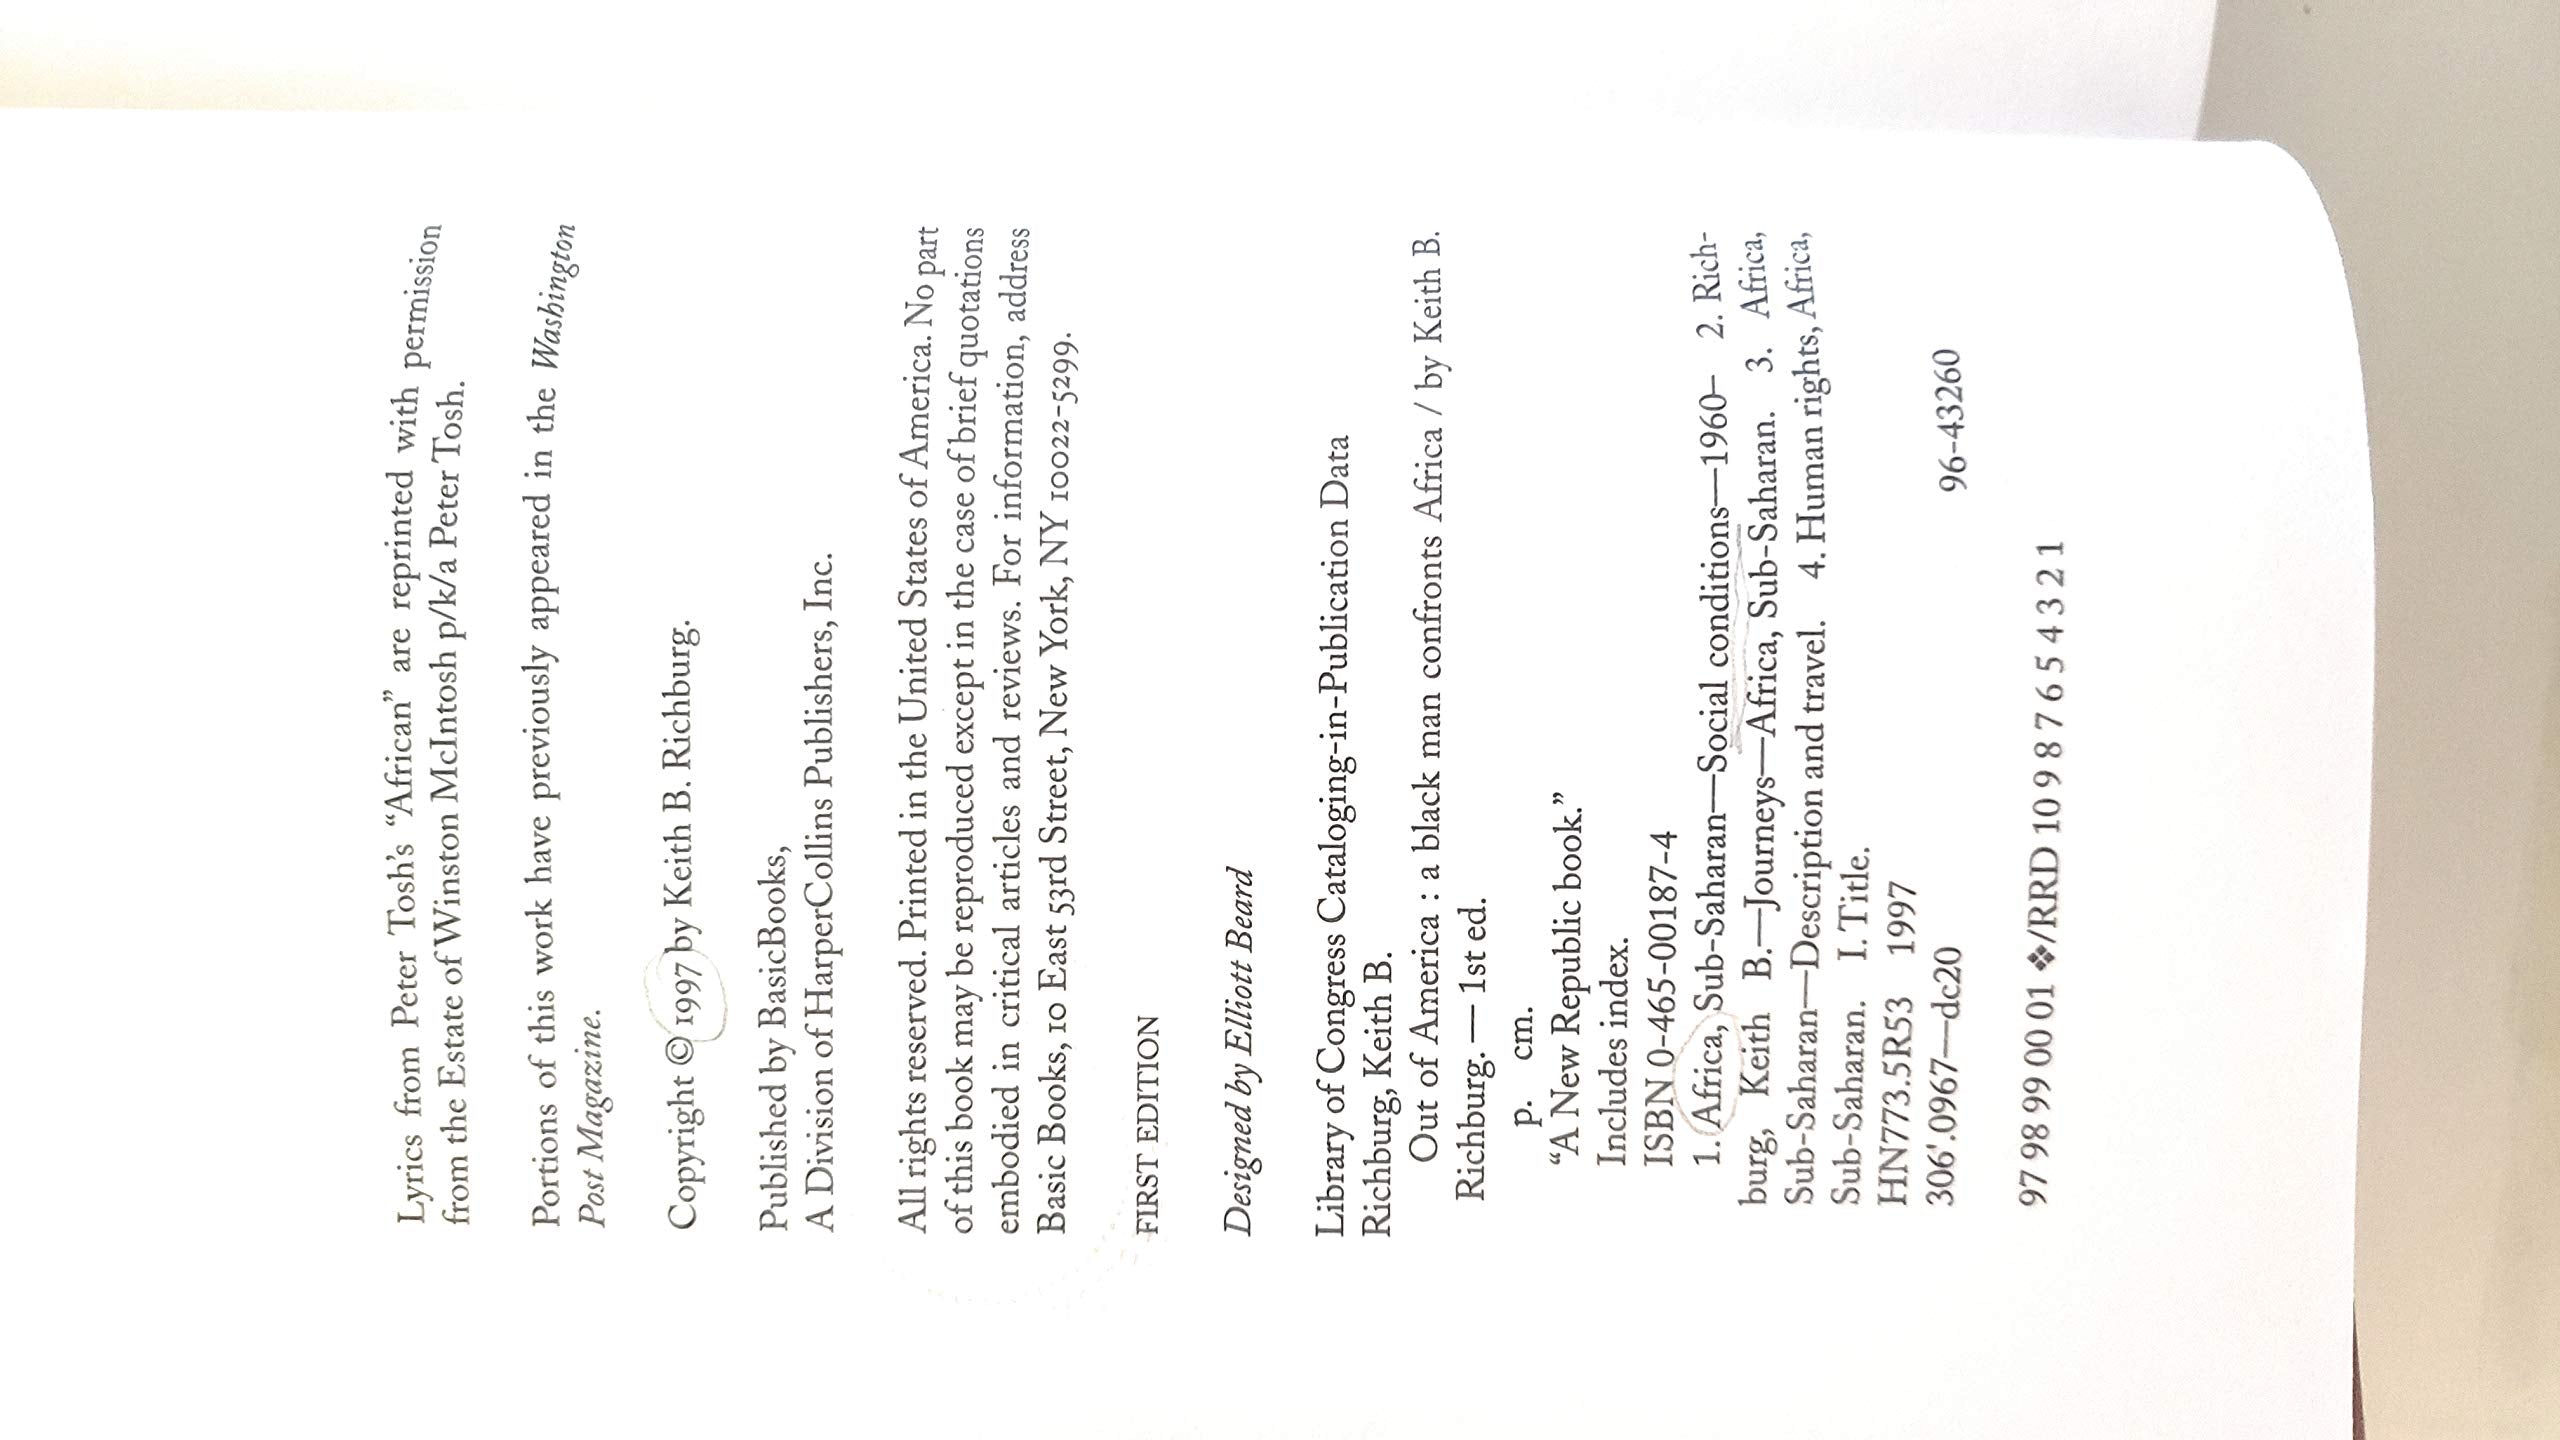 Lyrics from Peter Tosh's “African” are reprinted with permission
from the Estate of Winston McIntosh p/k/a Peter Tosh.
Portions of this work have previously appeared in the Washington
Post Magazine.
Copyright © 1997 by Keith B. Richburg.
Published by BasicBooks,
A Division of HarperCollins Publishers, Inc.
All rights reserved. Printed in the United States of America. No part
of this book may be reproduced except in the case of brief quotations
embodied in critical articles and reviews. For information, address
Basic Books, 10 East 53rd Street, New York, NY 10022-5299.
FIRST EDITION
Designed by Elliott Beard
Library of Congress Cataloging-in-Publication Data
Richburg, Keith B.
Out of America : a black man confronts Africa / by Keith B.
Richburg. — 1st ed.
p. cm.
“A New Republic book.”
Includes index.
ISBN 0-465-00187-4
1. Africa, Sub-Saharan—Social conditions—1960– 2. Rich-
burg, Keith B.—Journeys—Africa, Sub-Saharan. 3. Africa,
Sub-Saharan—Description and travel. 4. Human rights, Africa,
Sub-Saharan. I. Title.
HN773.5R53 1997
306'.0967—dc20 96-43260
97 98 99 00 01 ❖/RRD 10 9 8 7 6 5 4 3 2 1